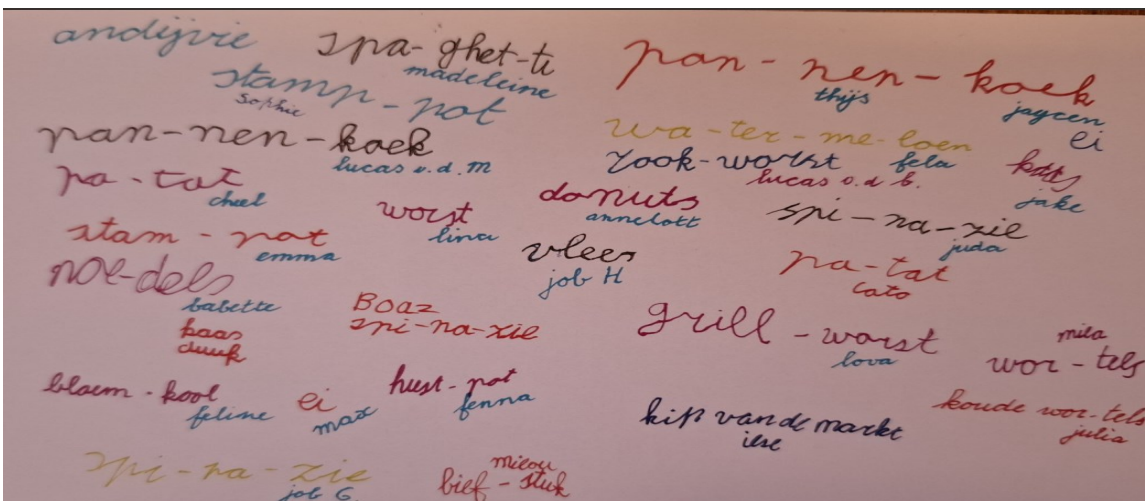 andijvie
spa-ghet-ti
madeleine
pan-nen-koek
thijs
jaycen
stamp-pot
sophie
pan-nen-koek
lucas v.d. M
wa-ter-me-loen
fela
ei
rook-worst
lucas v.d b.
kaas
jake
pa-tat
cheel
worst
lina
donuts
annelott
spi-na-zie
juda
stam-pot
emma
vlees
job H
pa-tat
cato
noe-dels
babette
kaas
duuk
Boaz
spi-na-zie
grill-worst
lova
mila
wor-tels
bloem-kool
feline
ei
max
huts-pot
fenna
kip van de markt
ilse
koude wor-tels
julia
spi-na-zie
job G
milou
bief-stuk